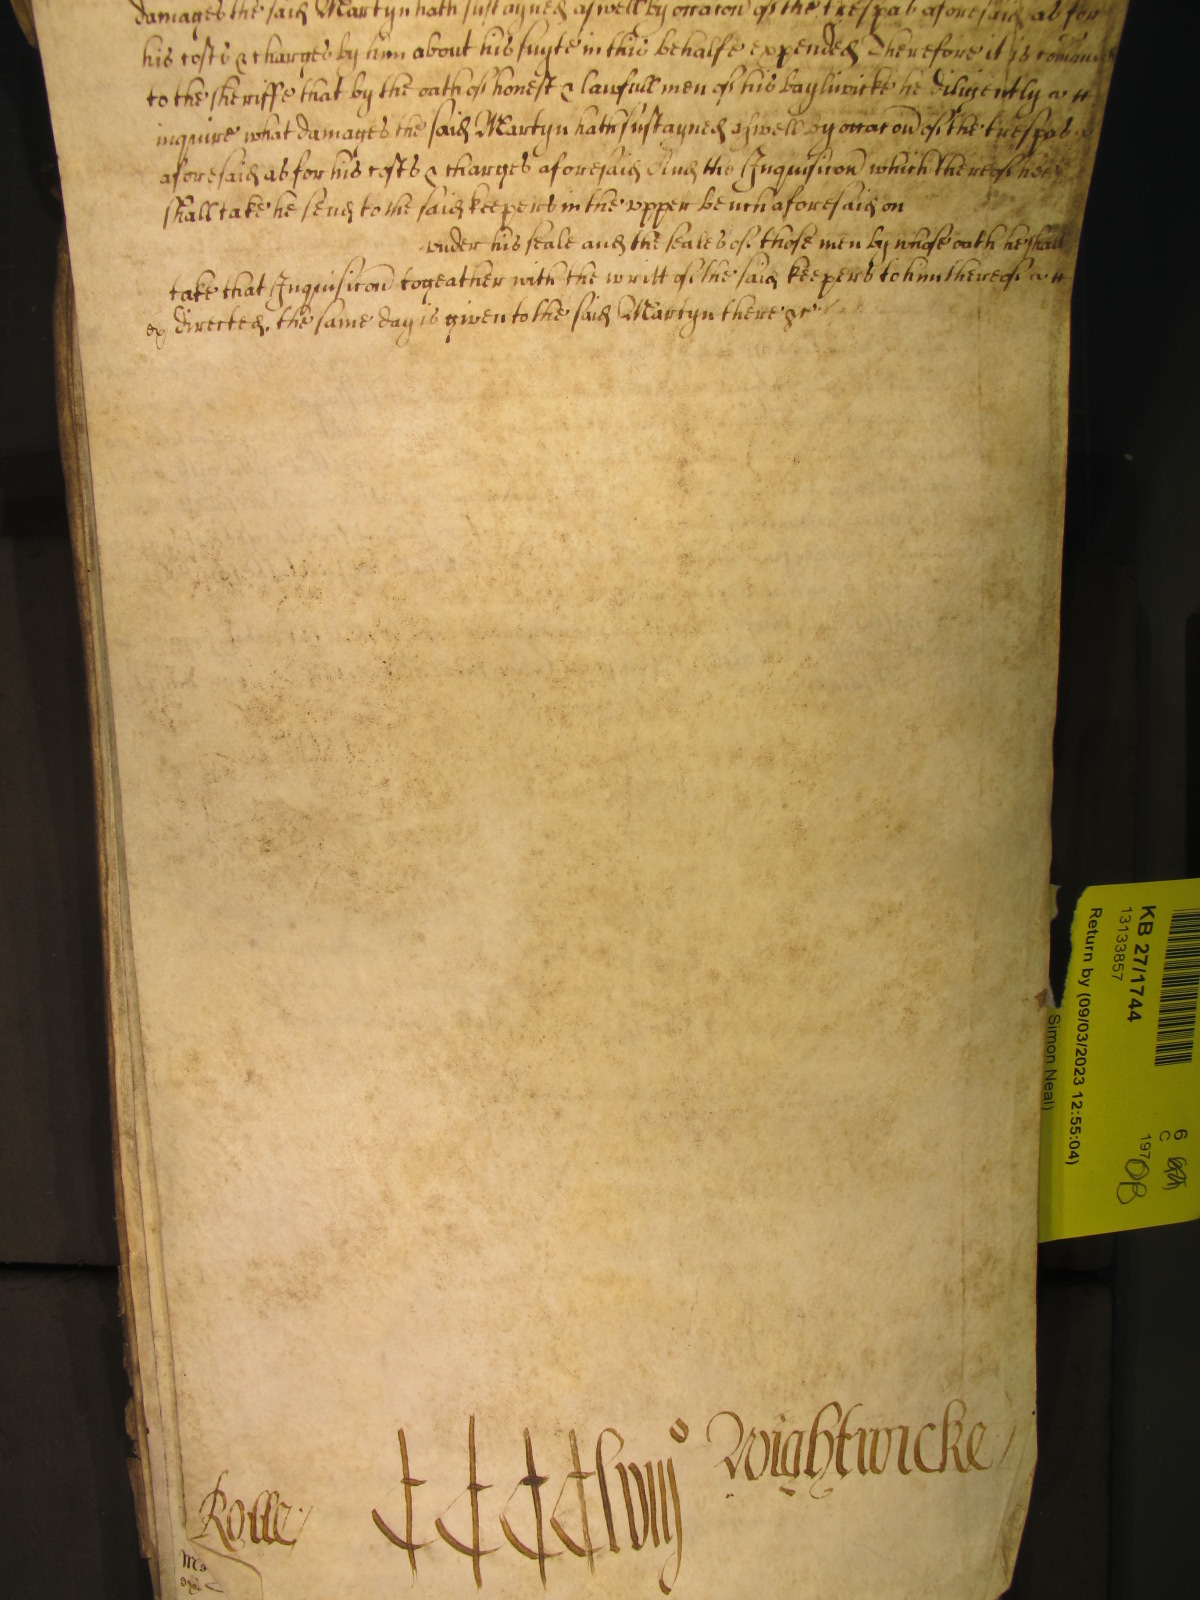 damages the said Martyn hath sustayned aswell by occacon of the trespas aforesaid as for
his costs & charges by him about his suyte in this behalfe expended Therefore it is
to the sheriffe that by the oath of honest & lawfull men of his bayliwicke he diligently
inquire what damages the said Martyn hath sustayned aswell by occacon of the trespas
aforesaid as for his costs & charges aforesaid And the Inquisicon which thereof hee
shall take he send to the said keepers in the upper bench aforesaid on
under his seale and the seales of those men by whose oath he shall
take that Inquisicon togeather with the writt of the said keepers to him thereof
directed, the same day is given to the said Martyn there &c
KB 27/1744
13133857
Return by (09/03/2023 12:55:04)
Simon Neal)
6
C
197
Wightwicke
Rolle
CCCClviij o